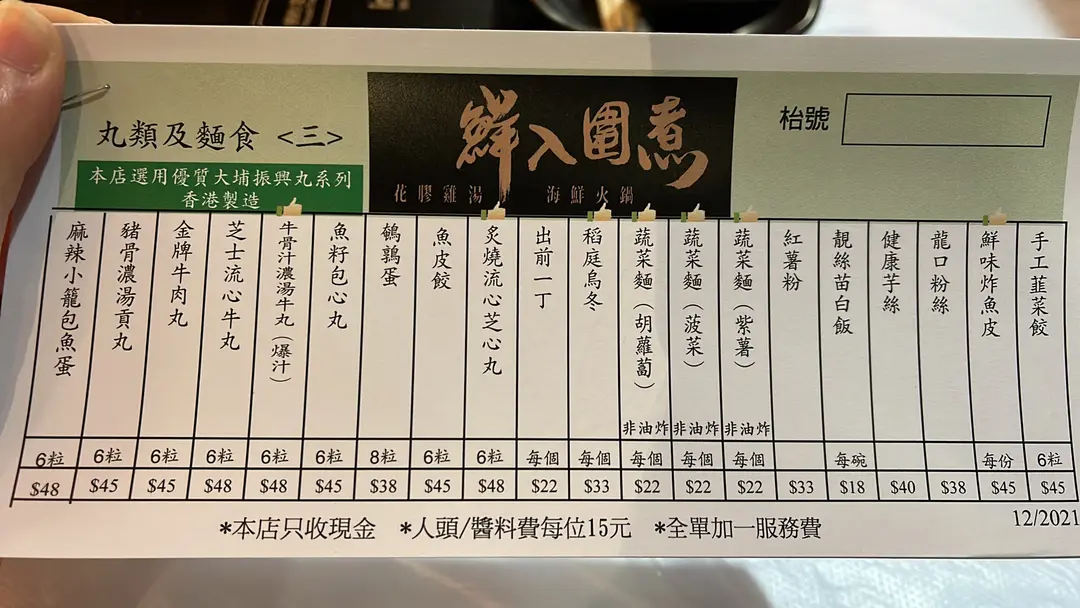 丸類及麵食 <三>
本店選用優質大埔振興丸系列
香港製造
鮮入圍煮
花膠雞湯 海鮮火鍋
枱號
手工韮菜餃 6粒 $45
鮮味炸魚皮 每份 $45
龍口粉絲 $38
健康芋絲 $40
靚絲苗白飯 每碗 $18
紅薯粉 $33
蔬菜麵（紫薯） 非油炸 每個 $22
蔬菜麵（菠菜） 非油炸 每個 $22
蔬菜麵（胡蘿蔔） 非油炸 每個 $22
稻庭烏冬 每個 $33
出前一丁 每個 $22
炙燒流心芝心丸 6粒 $48
魚皮餃 6粒 $45
鵪鶉蛋 8粒 $38
魚籽包心丸 6粒 $45
牛骨汁濃湯牛丸（爆汁） 6粒 $48
芝士流心牛丸 6粒 $48
金牌牛肉丸 6粒 $45
豬骨濃湯貢丸 6粒 $45
麻辣小籠包魚蛋 6粒 $48
*本店只收現金 *人頭/醬料費每位15元 *全單加一服務費
12/2021